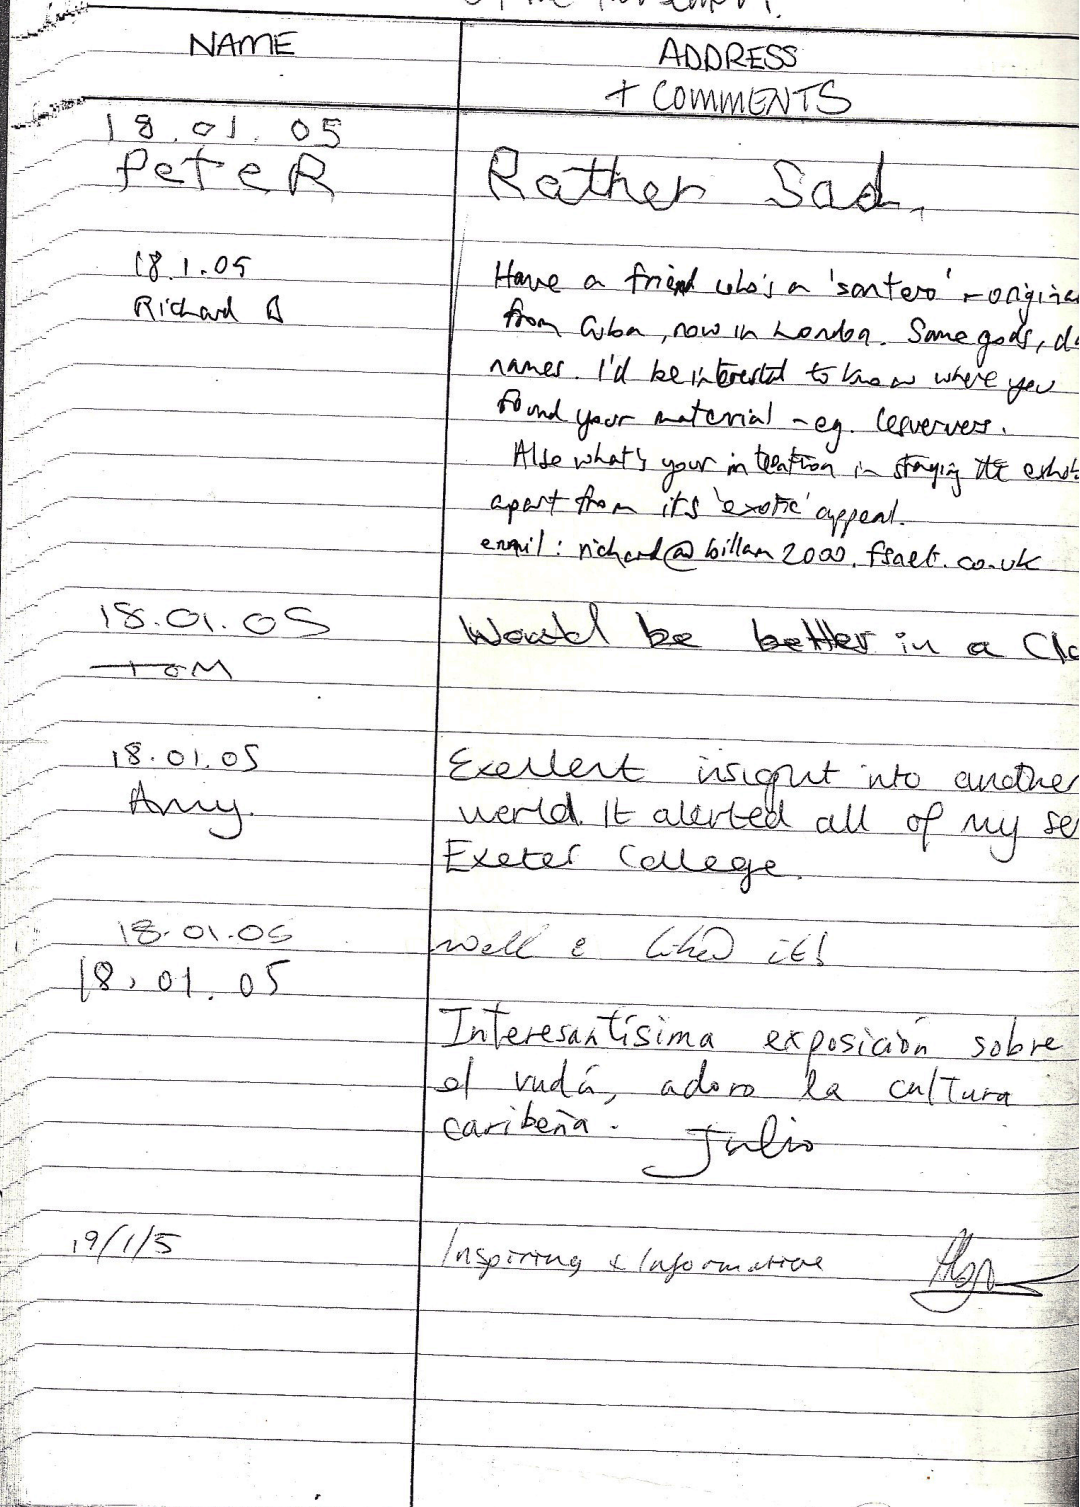 of the
NAME
ADDRESS
+ COMMENTS
18.01.05
PeteR
Rather Sad.
18.1.05
Richard B
Have a friend who's a 'santero' - origina
from Cuba, now in London. Same gods, d
names. I'd be interested to know where you
found your material - eg.
Also what's your intention in staging the exhib
apart from its 'exotic' appeal.
email: richard@billam2000.fsnet.co.uk
18.01.05
TOM
Would be better in a Cla
18.01.05
Amy.
Exellent insight into another
world. It alerted all of my se
Exeter College.
18.01.05
Well e liked it!
18.01.05
Interesantísima exposición sobre
el vudú, adoro la cultura
caribeña. Julio
19/1/5
Inspiring & Informative